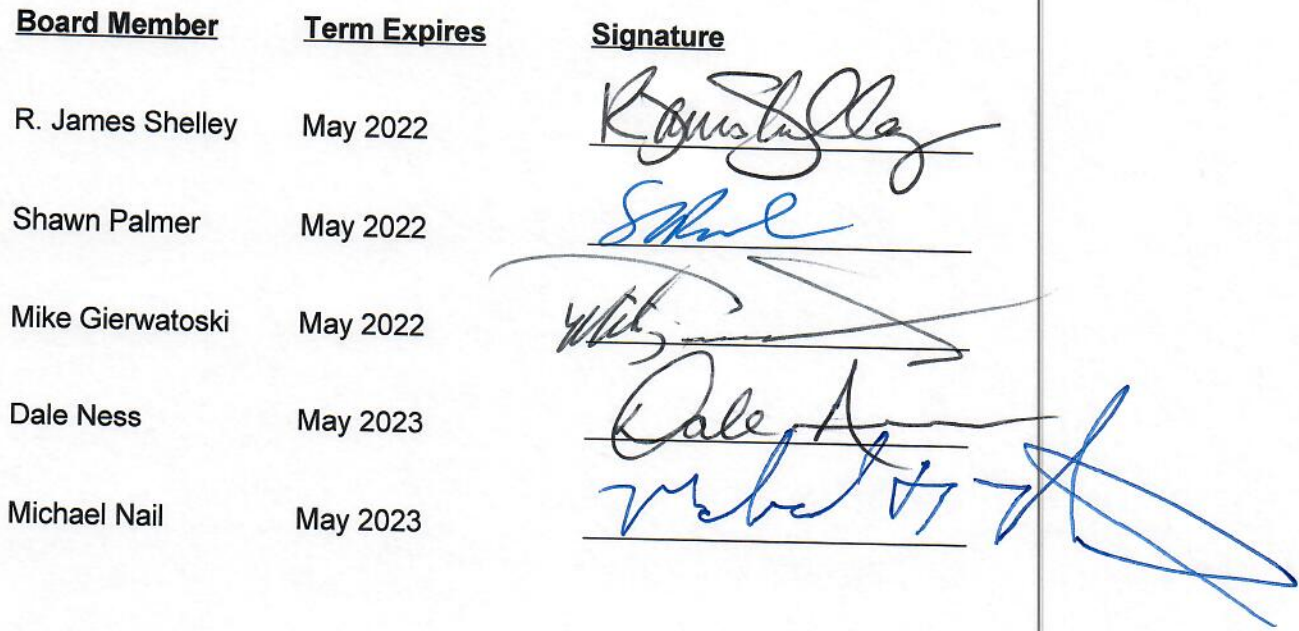 Board Member Term Expires Signature
R. James Shelley May 2022 R James Shelley
Shawn Palmer May 2022
Mike Gierwatoski May 2022
Dale Ness May 2023 Dale
Michael Nail May 2023